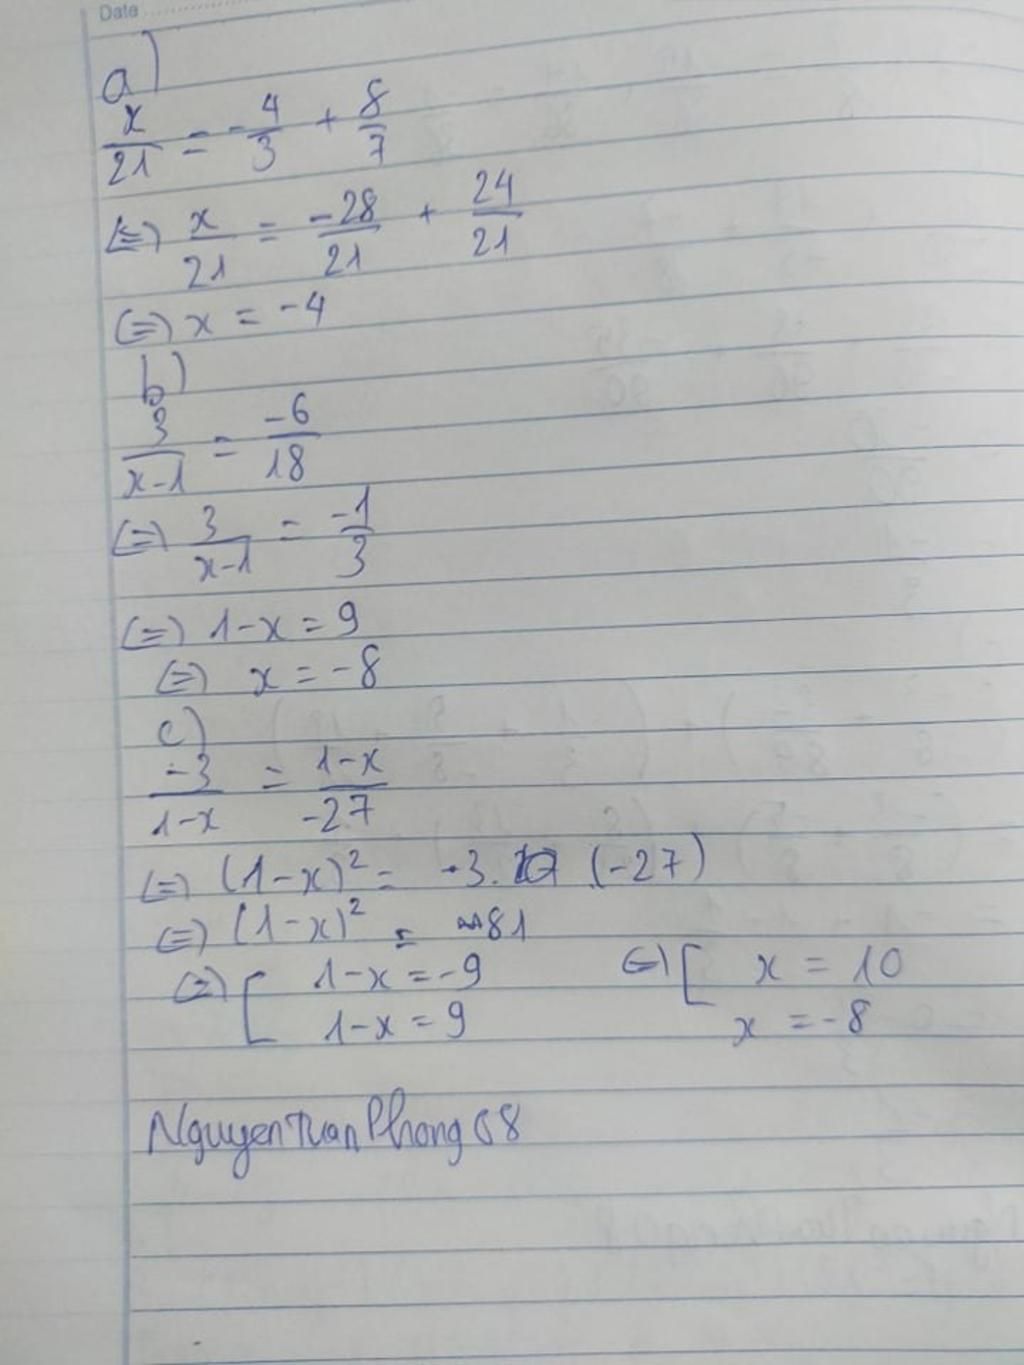 Date
a)
x/21 = -4/3 + 8/7
(=) x/21 = -28/21 + 24/21
(=) x = -4
b)
3/x-1 = -6/18
(=) 3/x-1 = -1/3
(=) 1-x = 9
(=) x = -8
c)
-3/1-x = 1-x/-27
(=) (1-x)² = -3. (-27)
(=) (1-x)² = 81
(=) [ 1-x = -9 (=) [ x = 10
1-x = 9 x = -8
NguyenTuanPhong68